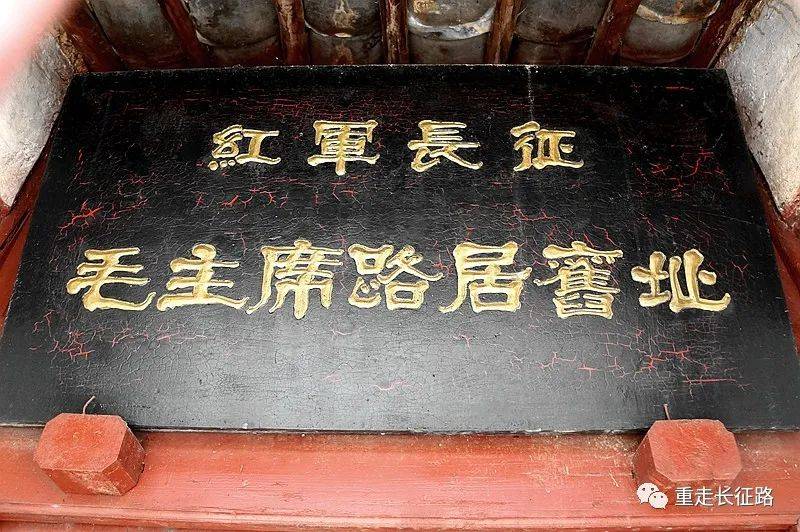 紅軍長征
毛主席路居舊址
重走长征路